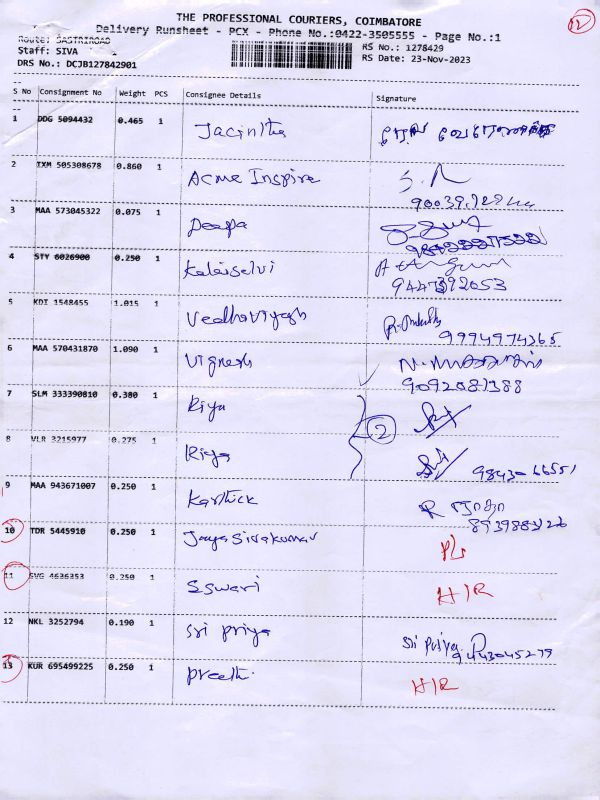 12
THE PROFESSIONAL COURIERS, COIMBATORE
Delivery Runsheet - PCX - Phone No.:0422-3505555 - Page No.:1
Route: SASTRIROAD
Staff: SIVA
RS No.: 1278429
DRS No.: DCJB127842901
RS Date: 23-Nov-2023
S No Consignment No Weight PCS Consignee Details Signature
1 DDG 5094432 0.465 1 Jacintha
2 TXM 505308678 0.860 1 Acme Inspire
3 MAA 573045322 0.075 1 Deepa
4 STY 6026900 0.250 1 Kalaiselvi
9447392053
5 KDI 1548455 1.015 1 Vedhaviyash
9994974365
6 MAA 570431870 1.090 1 Vignesh
9092081388
7 SLM 333390810 0.380 1 Riya
2
8 VLR 3215977 0.275 1 Riya
9843066551
9 MAA 943671007 0.250 1 Karthick
10 TDR 5445910 0.250 1 Jayasivakumar
11 SVG 4636353 0.250 1 Eswari H/R
12 NKL 3252794 0.190 1 Sri Priya Sri Priya
9443045279
13 KUR 695499225 0.250 1 Preethi H/R